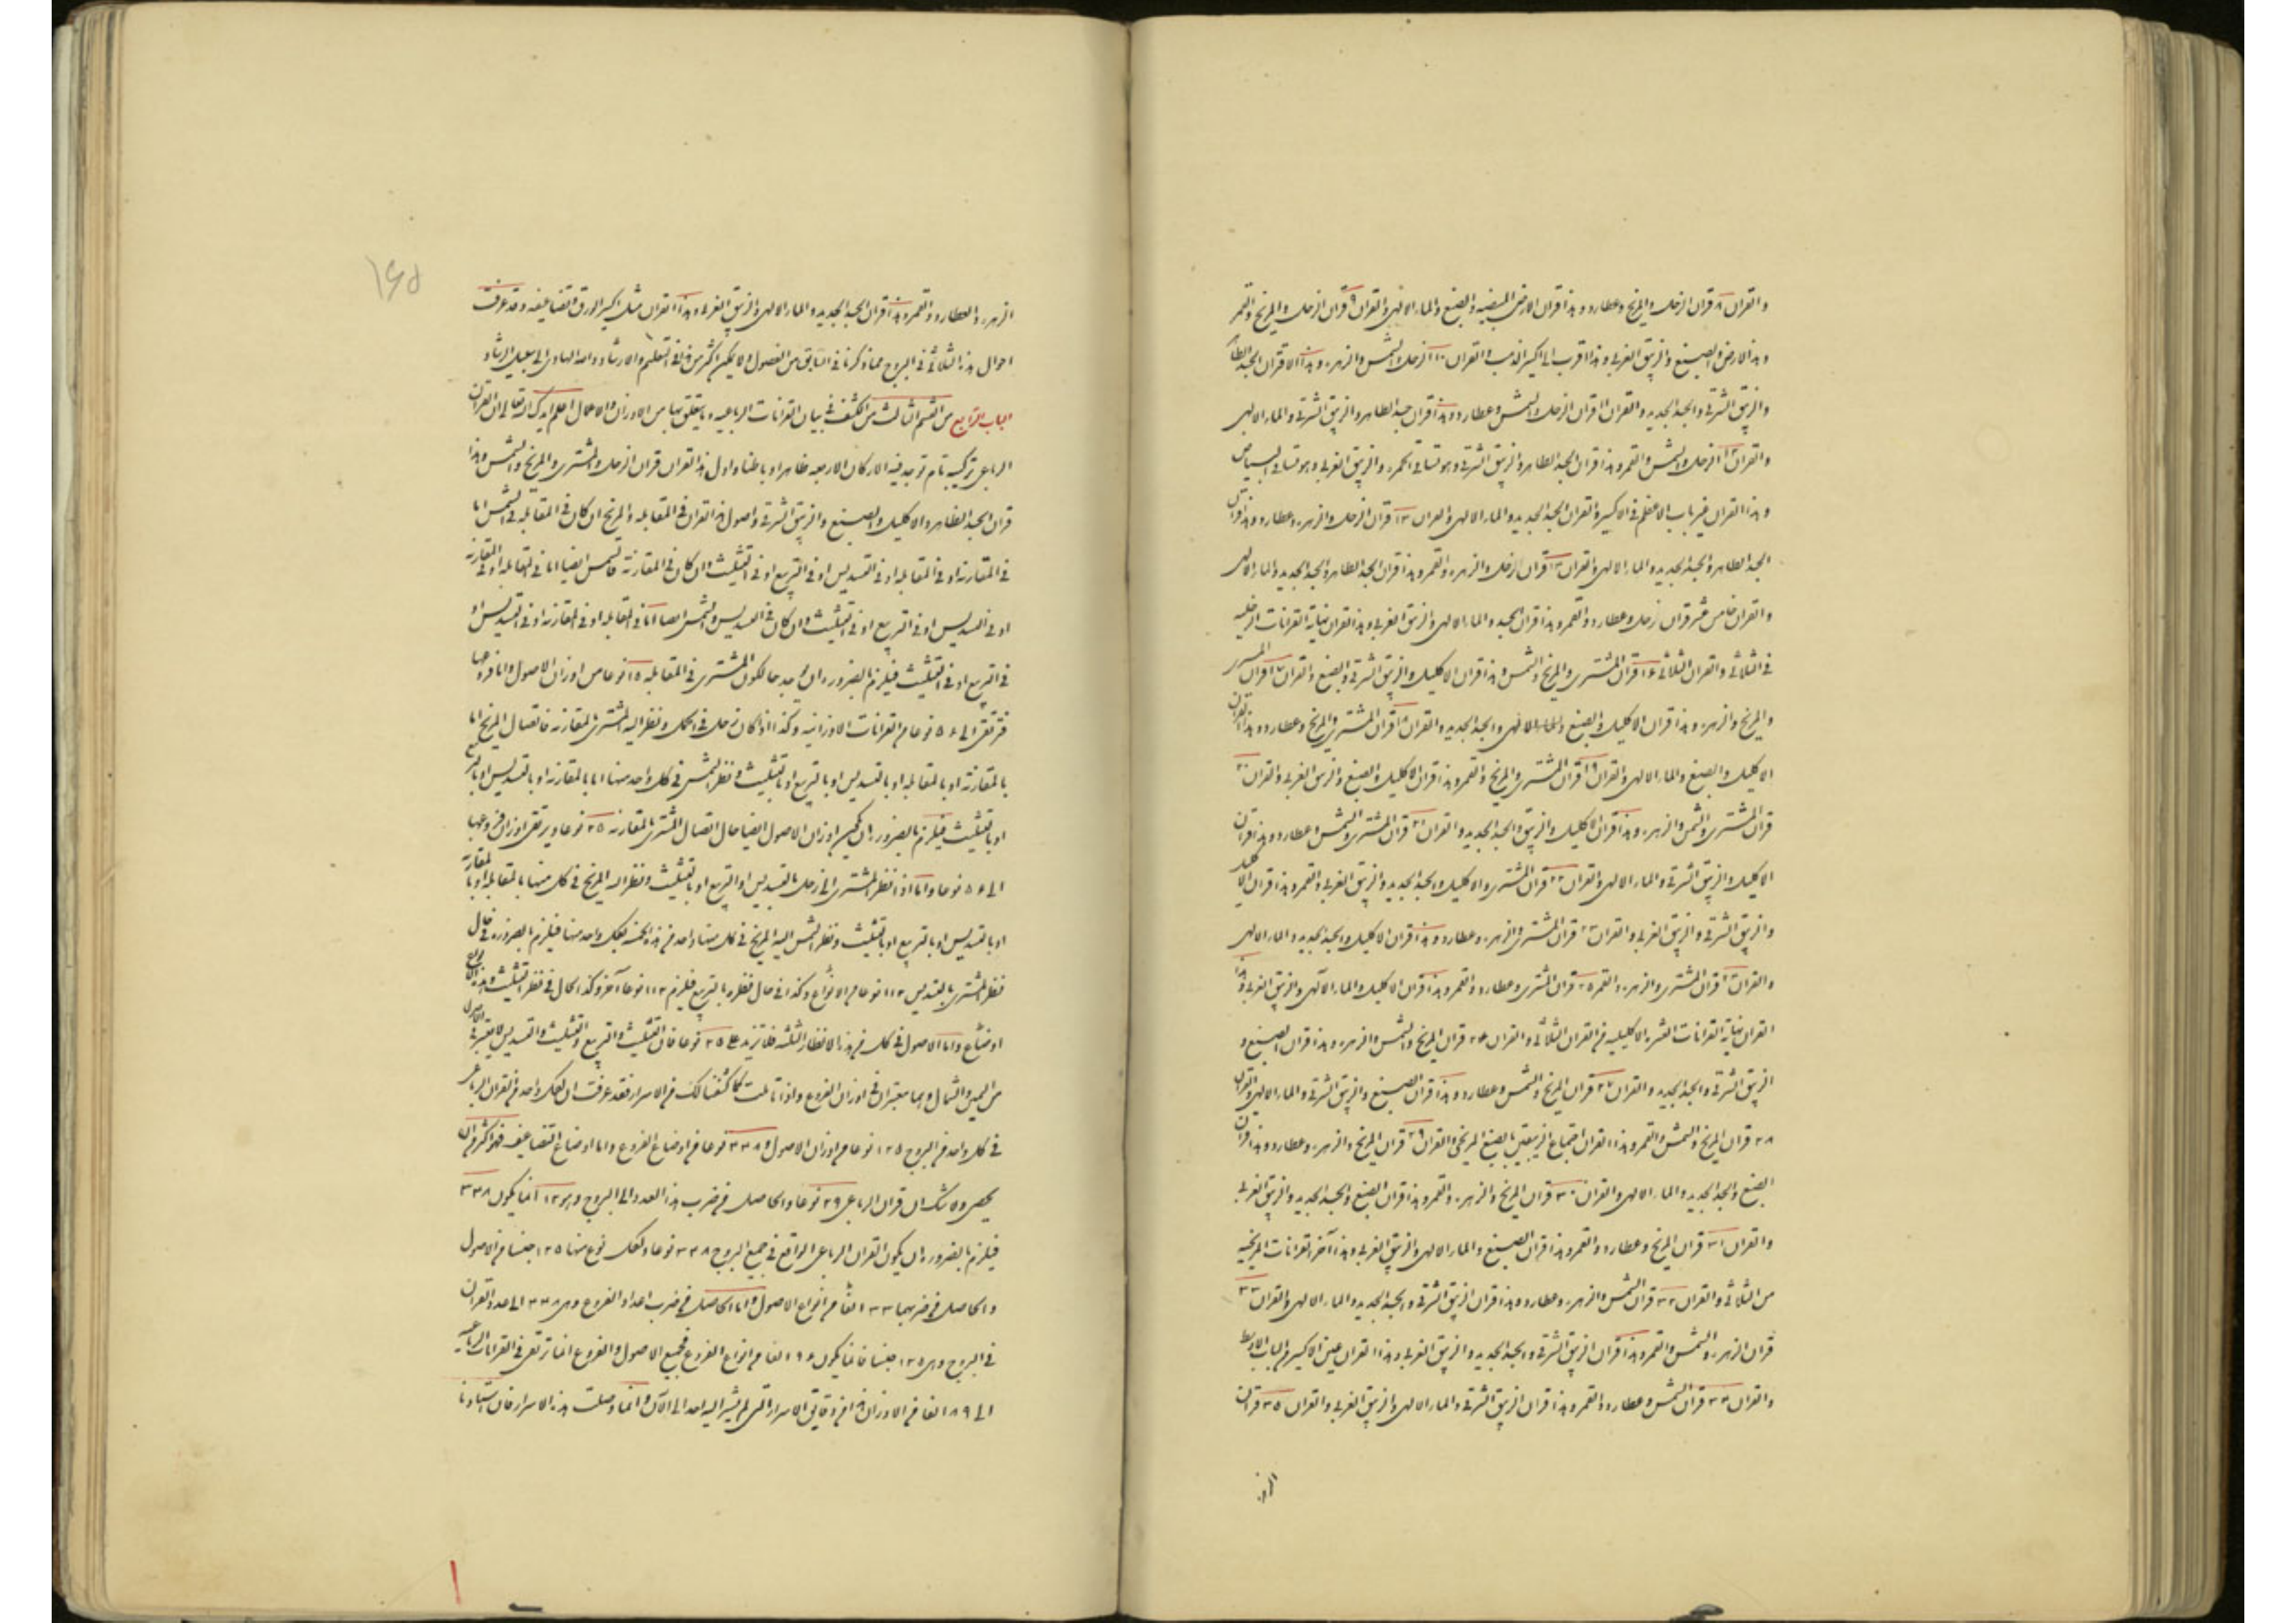 والقران ٨ قران الزحل والمريخ وعطارد وهذا قران الارض المبيضه والصبغ والماء الالهى والقران ٩ قران الزحل والمريخ والقمر
وهذا الارض والصبغ والزيبق الغربى وهذا اقرب الى اكسير الذهب والقران ١٠ الزحل والشمس والزهره وهذا الاقران الجسد الطاهر
والزيبق الشرقى والجسد الجديد والقران ١١ قران الزحل والشمس وعطارد وهذا قران جسد الطاهر والزيبق الشرقى والماء الالهى
والقران ١٢ الزحل والشمس والقمر وهذا قران الجسد الطاهر والزيبق الشرقى وهو تساقى الحمره والزيبق الغربى وهو تساقى البياض
وهذا القران غير باب الاعظم فى الاكسير والقران الجسد الجديد والماء الالهى والقران ١٣ قران الزحل والزهره وعطارد وهذا قران
الجسد الطاهر والجسد الجديد والماء الالهى والقران ١٤ قران الزحل والزهره والقمر وهذا قران الجسد الطاهر والجسد الجديد والماء الالهى
والقران خامس عشر قران زحل وعطارد والقمر وهذا قران الجسد والماء الالهى والزيبق الغربى وهذا القران نهاية القرانات الزحليه
فى الثلاثى والقران الثلاثى ١٦ قران المشترى والمريخ والشمس وهذا قران الاكليل والزيبق الشرقى والصبغ والقران ١٧ قران المشترى
والمريخ والزهره وهذا قران الاكليل والصبغ والماء الالهى والجسد الجديد والقران ١٨ قران المشترى والمريخ وعطارد وهذا القران
الاكليل والصبغ والماء الالهى والقران ١٩ قران المشترى والمريخ والقمر وهذا قران الاكليل والصبغ والزيبق الغربى والقران ٢٠
قران المشترى والشمس والزهره وهذا قران الاكليل والزيبق والجسد الجديد والقران ٢١ قران المشترى والشمس وعطارد وهذا قران
الاكليل والزيبق الشرقى والماء الالهى والقران ٢٢ قران المشترى والاكليل والجسد الجديد والزيبق الغربى والقمر وهذا قران الاكليل
والزيبق الشرقى والزيبق الغربى والقران ٢٣ قران المشترى والزهره وعطارد وهذا قران الاكليل والجسد الجديد والماء الالهى
والقران ٢٤ قران المشترى والزهره والقمر ٢٥ قران المشترى وعطارد والقمر وهذا قران الاكليل والماء الالهى والزيبق الغربى وهذا
القران نهاية القرانات العشره الاكليليه فى القران الثلاثى والقران ٢٦ قران المريخ والشمس والزهره وهذا قران الصبغ و
الزيبق الشرقى والجسد الجديد والقران ٢٧ قران المريخ والشمس وعطارد وهذا قران الصبغ والزيبق الشرقى والماء الالهى والقران
٢٨ قران المريخ والشمس والقمر وهذا القران اجتماع الزيبقين بالصبغ المريخى والقران ٢٩ قران المريخ والزهره وعطارد وهذا قران
الصبغ والجسد الجديد والماء الالهى والقران ٣٠ قران المريخ والزهره والقمر وهذا قران الصبغ والجسد الجديد والزيبق الغربى
والقران ٣١ قران المريخ وعطارد والقمر وهذا قران الصبغ والماء الالهى والزيبق الغربى وهذا آخر القرانات المريخيه
من الثلاثى والقران ٣٢ قران الشمس والزهره وعطارد وهذا قران الزيبق الشرقى والجسد الجديد والماء الالهى والقران ٣٣
قران الزهره والشمس والقمر وهذا قران الزيبق الشرقى والجسد الجديد والزيبق الغربى وهذا القران عين الاكسير فى الباب الاوسط
والقران ٣٤ قران الشمس وعطارد والقمر وهذا قران الزيبق الشرقى والماء الالهى والزيبق الغربى والقران ٣٥ قران
الز
١٦٥
الزهره والعطارد والقمر وهذا قران الجسد الجديد والماء الالهى والزيبق الغربى وهذا القران مثل اكسير الورق وتضاعيفه وقد عرفت
احوال هذه الثلاثى فى البروج مما ذكرنا فى السابق من الفصول ولا يمكن اكثر من هذا فى التعليم والارشاد والله الهادى الى سبيل الرشاد
الباب الرابع من القسم الثالث من الكشف فى بيان القرانات الرباعيه وما يتعلق بها من الاوزان والاعمال اعلم ايدك الله تعالى ان القران
الرباعى تركيب تام توجد فيه الاركان الاربعه ظاهرا وباطنا واول هذا القران قران الزحل والمشترى والمريخ والشمس وهذا
قران الجسد الطاهر والاكليل والصبغ والزيبق الشرقى واصول هذا القران فى المقابله والمريخ ان كان فى المقابله فى الشمس اما
فى المقارنه او فى المقابله او فى التسديس او فى التربيع او فى التثليث وان كان فى المقارنة فالشمس ايضا اما فى المقابله او فى المقارنه
او فى التسديس او فى التربيع او فى التثليث وان كان فى التسديس والشمس ايضا اما فى المقابله او فى المقارنه او فى التسديس او
فى التربيع او فى التثليث فيلزم بالضروره ان يوجد حالكون المشترى فى المقابله ١٥ نوعا من اوزان الاصول واما فروعها
فترتقى الى ٥٦ نوعا من القرانات الاوزانيه وكذا اذا كان زحل فى الحمل ونظر اليه المشترى بالمقارنه فاتصال المريخ اما
بالمقارنة او بالمقابله او بالتسديس او بالتربيع او بالتثليث ونظر الشمس فى كل واحد منها اما بالمقارنه او بالتسديس او بالتربيع
او بالتثليث فيلزم بالضروره ان يكون اوزان الاصول ايضا حال اتصال المشترى بالمقارنه ٢٥ نوعا ويرتقى اوزان فروعها
الى ٥٦ نوعا واما اذا نظر المشترى الى زحل بالتسديس او التربيع او بالتثليث ونظر اليه المريخ فى كل منها بالمقابله او بالمقارنة
او بالتسديس او بالتربيع او بالتثليث ونظر الشمس اليه المريخ فى كل منها واحد من هذه الخمسه لكل واحد منها فيلزم بالضروره فى حال
نظر المشترى بالتسديس ١١٢ نوعا من الانواع وكذا فى حال نظره بالتربيع فيلزم ١١٢ نوعا آخر وكذا الحال فى نظر التثليث
اوضاع واما الاصول فى كل من هذه الانظار الثلثه فلا تزيد على ٢٥ نوعا فان التثليث والتربيع والتثليث والتسديس لا يعتبر فى الاصول
من اليمين والشمال وانهما معتبران فى اوزان الفروع واذا تاملت كما كشفنا لك من الاسرار فقد عرفت ان لكل واحد من القران الرباعى
فى كل واحد من البروج ١٢٥ نوعا من اوزان الاصول و ٣٣٨ نوعا من اوضاع الفروع واما اوضاع التضاعيف فهو اكثر من ان
يحصى ولا شك ان قران الرباعى ٢٩ نوعا والحاصل من ضرب هذا العدد الى البروج وهو ١٢ انما يكون ٣٣٨
فيلزم بالضروره ان يكون القران الرباعى الواقع فى جميع البروج ٣٣٨ نوعا ولكل نوع منها ١٢٥ جنسا من الاصول
والحاصل من ضربهما ٣٣ الفا من انواع الاصول واما الحاصل من ضرب اعداد الفروع وهى ٣٣٨ الى عدد القران
فى البروج وهى ١٢٥ جنسا فانما يكون ١٩٦ الفا من انواع الفروع فجميع الاصول والفروع انما ترتقى فى القرانات الرباعيه
الى ١٨٩ الفا من الاوزان هذا من دقايق الاسرار التى لم يشير اليه احد الى الآن وانما وصلت هذه الاسرار فان استادنا